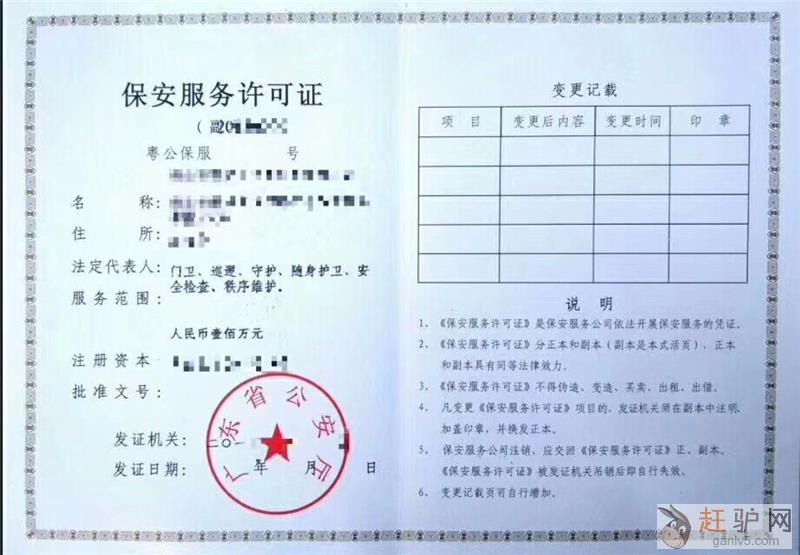 保安服务许可证
(副
粤公保服 号
名 称:
住 所:
法定代表人:
门卫、巡逻、守护、随身护卫、安
全检查、秩序维护。
服务范围:
人民币壹佰万元
注册资本
批准文号:
广东省公安厅
发证机关:
二〇一
发证日期: 年 月 日
变更记载
项 目 变更后内容 变更时间 印 章
说 明
1、《保安服务许可证》是保安服务公司依法开展保安服务的凭证。
2、《保安服务许可证》分正本和副本(副本是本式活页),正本
和副本具有同等法律效力。
3、《保安服务许可证》不得伪造、变造、买卖、出租、出借。
4、凡变更《保安服务许可证》项目的,发证机关须在副本中注明,
加盖印章,并换发正本。
5、保安服务公司注销,应交回《保安服务许可证》正、副本。
《保安服务许可证》被发证机关吊销后即自行失效。
6、变更记载页可自行增加。
赶驴网
ganlv5.com